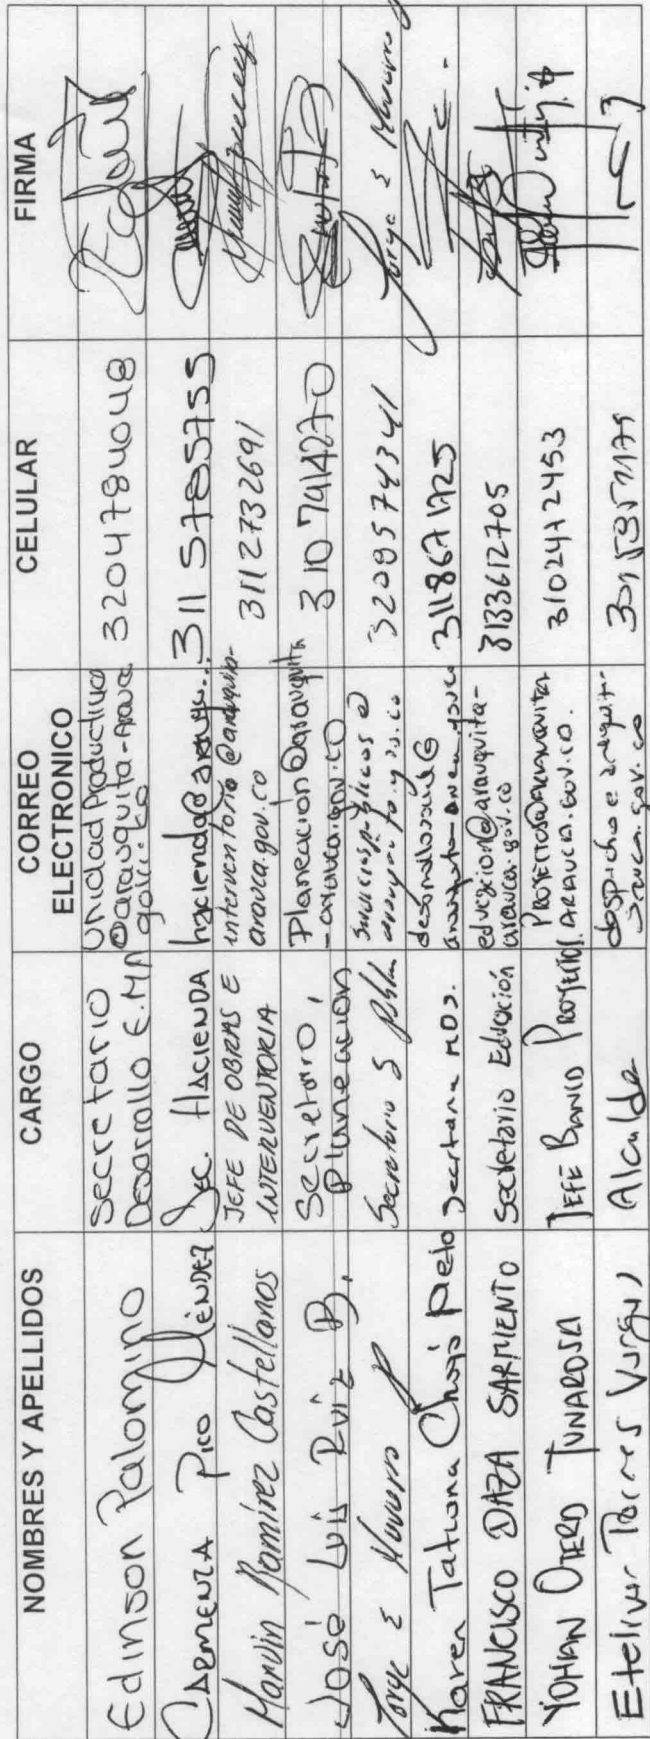 NOMBRES Y APELLIDOS CARGO CORREO ELECTRONICO CELULAR FIRMA
Edinson Palomino Secretario Desarrollo E.MA Unidad Productiva @arauquita-arauca gov.co 3204784048
Carmenza Pico Méndez Sec. Hacienda hacienda@arauqu... 311 5785755
Marvin Ramírez Castellanos JEFE DE OBRAS E INTERVENTORIA interventoria@arauquita-arauca.gov.co 3112732691
José Luis Ruiz B. Secretario, Planeacion Planeacion@arauquita-arauca.gov.co 310 7414270
Jorge E Navarro Secretario S 3209574341 Jorge E Navarro
Karen Tatiana Nieto Secretaria 3118671725
FRANCISCO DAZA SARMIENTO Secretario Educación educacion@arauquita-arauca.gov.co 3133612705
YOHAN OTERO TUNAROSA JEFE BANCO PROYECTOS PROYECTOS@ARAUQUITA ARAUCA.GOV.CO. 3102472453
Etelivar Torres Vargas Alcalde despacho@arauquita-arauca.gov.co